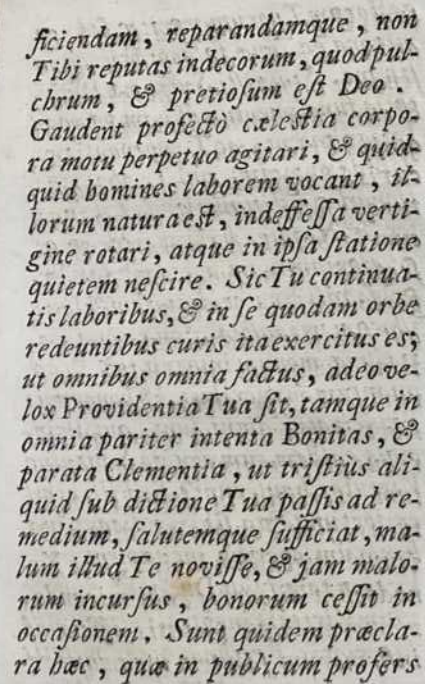 ficiendam, reparandamque, non
Tibi reputas indecorum, quod pul-
chrum, & pretioſum eſt Deo.
Gaudent profectò cæleſtia corpo-
ra motu perpetuo agitari, & quid-
quid homines laborem vocant, il-
lorum natura eſt, indeffeſſa verti-
gine rotari, atque in ipſa ſtatione
quietem neſcire. Sic Tu continua-
tis laboribus, & in ſe quodam orbe
redeuntibus curis ita exercitus es;
ut omnibus omnia factus, adeo ve-
lox Providentia Tua ſit, tamque in
omnia pariter intenta Bonitas, &
parata Clementia, ut triſtiùs ali-
quid ſub dictione Tua paſſis ad re-
medium, ſalutemque ſufficiat, ma-
lum illud Te noviſſe, & jam malo-
rum incurſus, bonorum ceſſit in
occaſionem. Sunt quidem præcla-
ra hæc, quæ in publicum profers